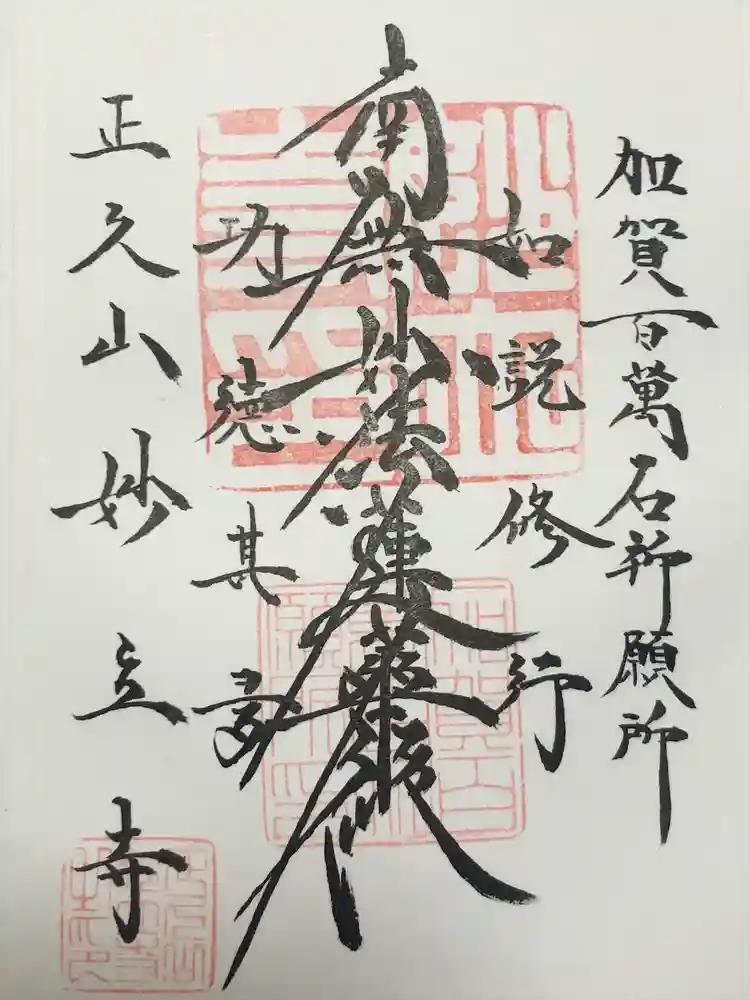 加賀百萬石祈願所
如説修行
南無妙法蓮華経
功德甚多
正久山妙立寺